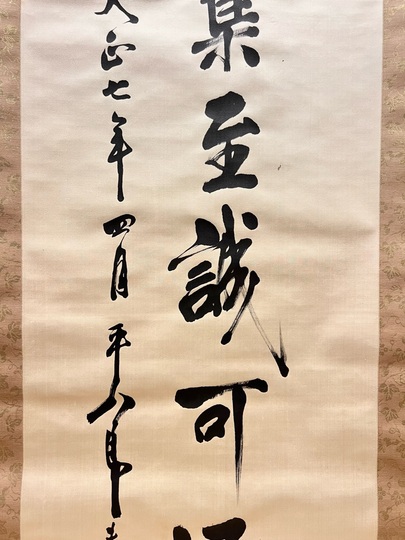 集至誠可
大正七年四月平八郎